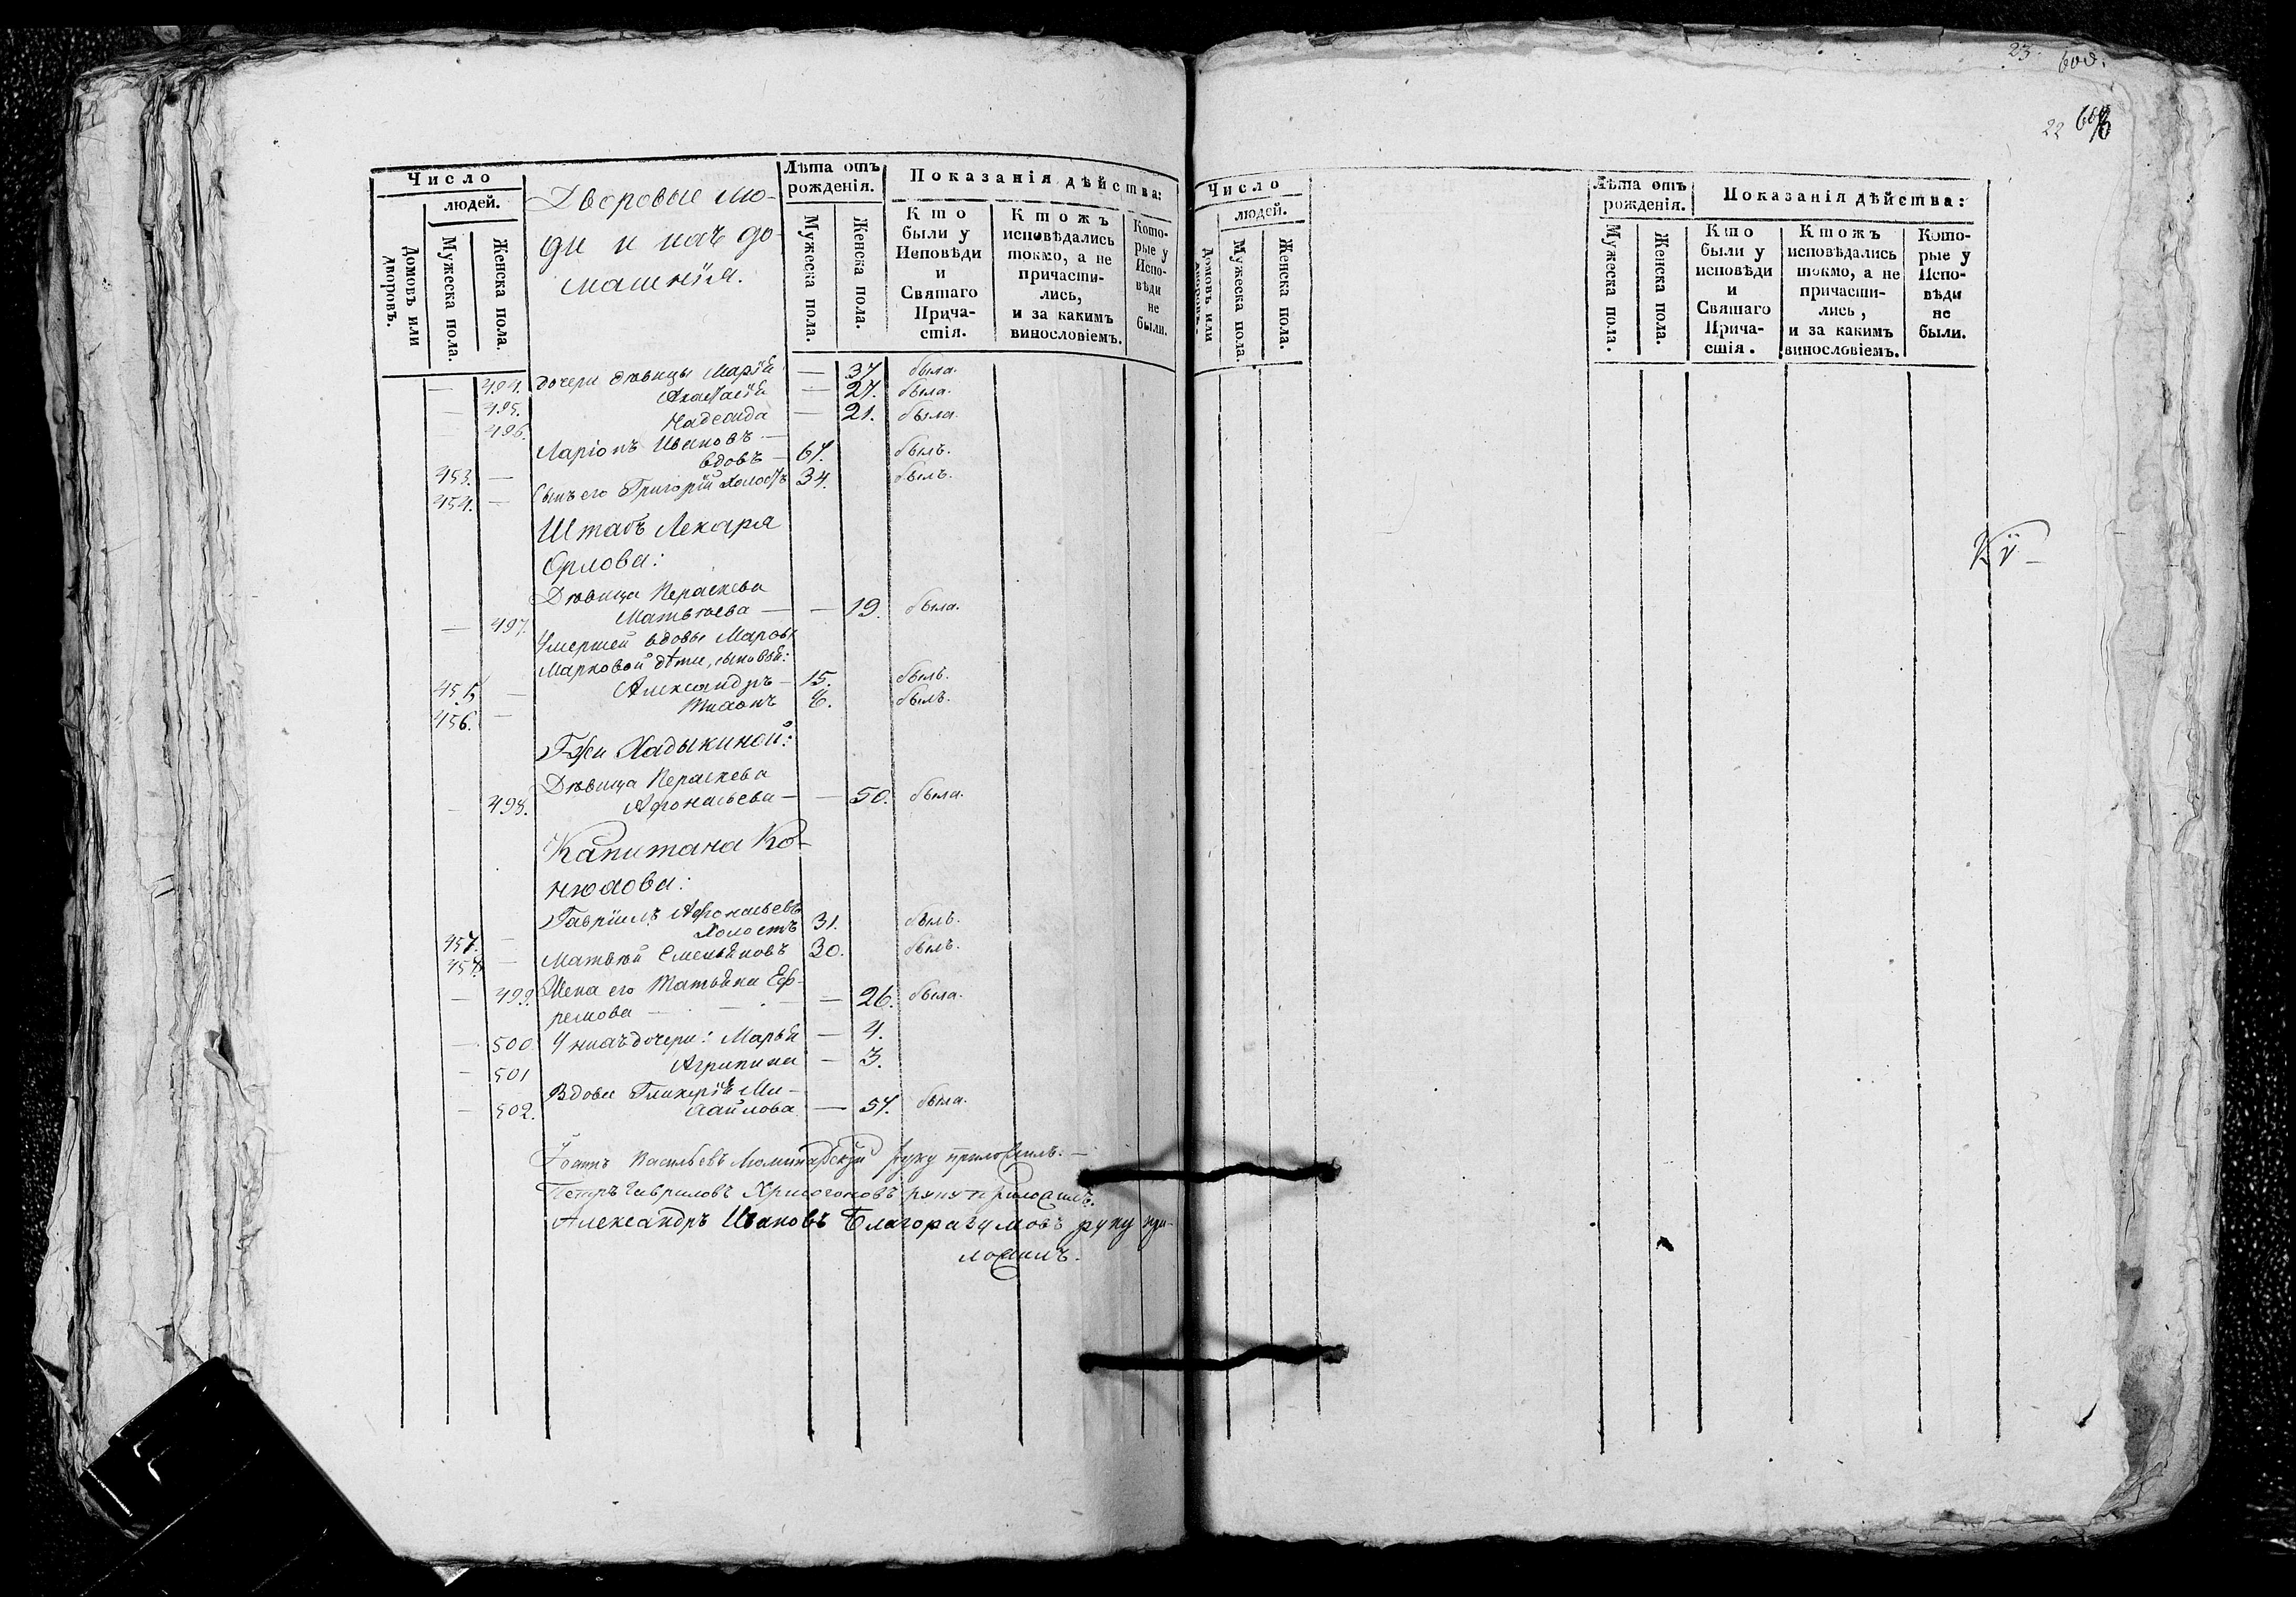 Число
людей.
Домовъ или дворовъ.
Мужеска пола.
Женска пола.
Дворовые лю-
ди и ихъ до-
машнія.
Лѣта отъ рожденія.
Мужеска пола.
Женска пола.
Показанія дѣйства:
Кто были у Исповѣди и Святаго Прича-стія.
Ктожъ исповѣдались токмо, а не причасти-лись, и за какимъ винословіемъ.
Кото-рые у Испо-вѣди не были.
— 494. дочери дѣвицы Марія — 37 была.
— 495. Анастасія — 27. была.
— 496. Надежда — 21. была.
Ларіонъ Ивановъ —
453. — вдовъ — 67. былъ.
454. — Сынъ его Григорій холостъ 34. былъ.
Штабъ Лекаря
Орлова:
Дѣвица Параскева
— 497. Матвѣева — — 19. была.
Умершей вдовы Марѳы
Марковой дѣти, сыновья:
455. — Александръ — 15. былъ.
456. — Тихонъ былъ.
Гжи Хадыкиной:
Дѣвица Параскева
— 498. Афонасьева — — 50. была.
Капитана Ко-
нюхова:
Гавріилъ Афонасьевъ
457. — холостъ 31. былъ.
458. — Матвѣй Емельяновъ 30. былъ.
Жена его Татьяна Еф-
— 499. ремова — — 26. была.
— 500 У нихъ дочери: Марья — 4.
— 501 Агрипина — 3.
Вдова Гликерія Ми-
— 502. хайлова — 57. была.
Іоаннъ Васильевъ руку приложилъ. —
Петръ Гавриловъ Хрисогоновъ руку приложилъ.
Александръ Ивановъ Благоразумовъ руку при-
ложилъ.
23. 600.
22
Число
людей.
Домовъ или дворовъ.
Мужеска пола.
Женска пола.
Лѣта отъ рожденія.
Мужеска пола.
Женска пола.
Показанія дѣйства:
Кто были у исповѣди и Святаго Прича-стія.
Ктожъ исповѣдались токмо, а не причасти-лись, и за какимъ винословіемъ.
Кото-рые у Испо-вѣди не были.